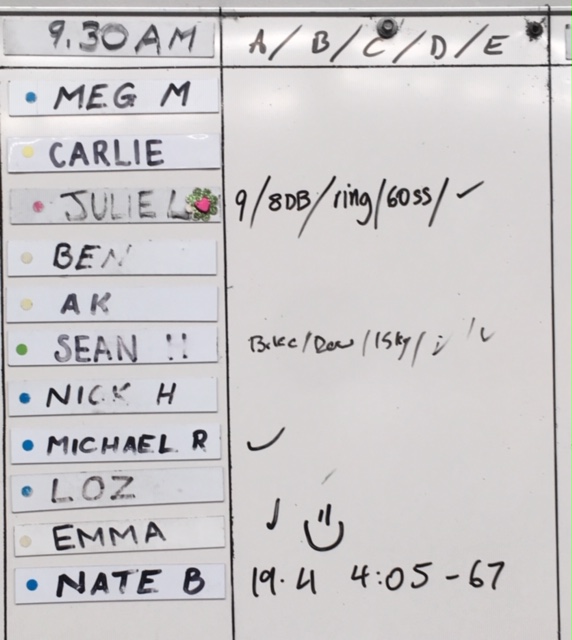 9.30AM A/B/C/D/E
MEG M
CARLIE
JULIE L 9/8DB/ring/60ss/✓
BEN
AK
SEAN H Bike/Row/15kg/
NICK H
MICHAEL R ✓
LOZ
EMMA
NATE B 19.4 4:05-67